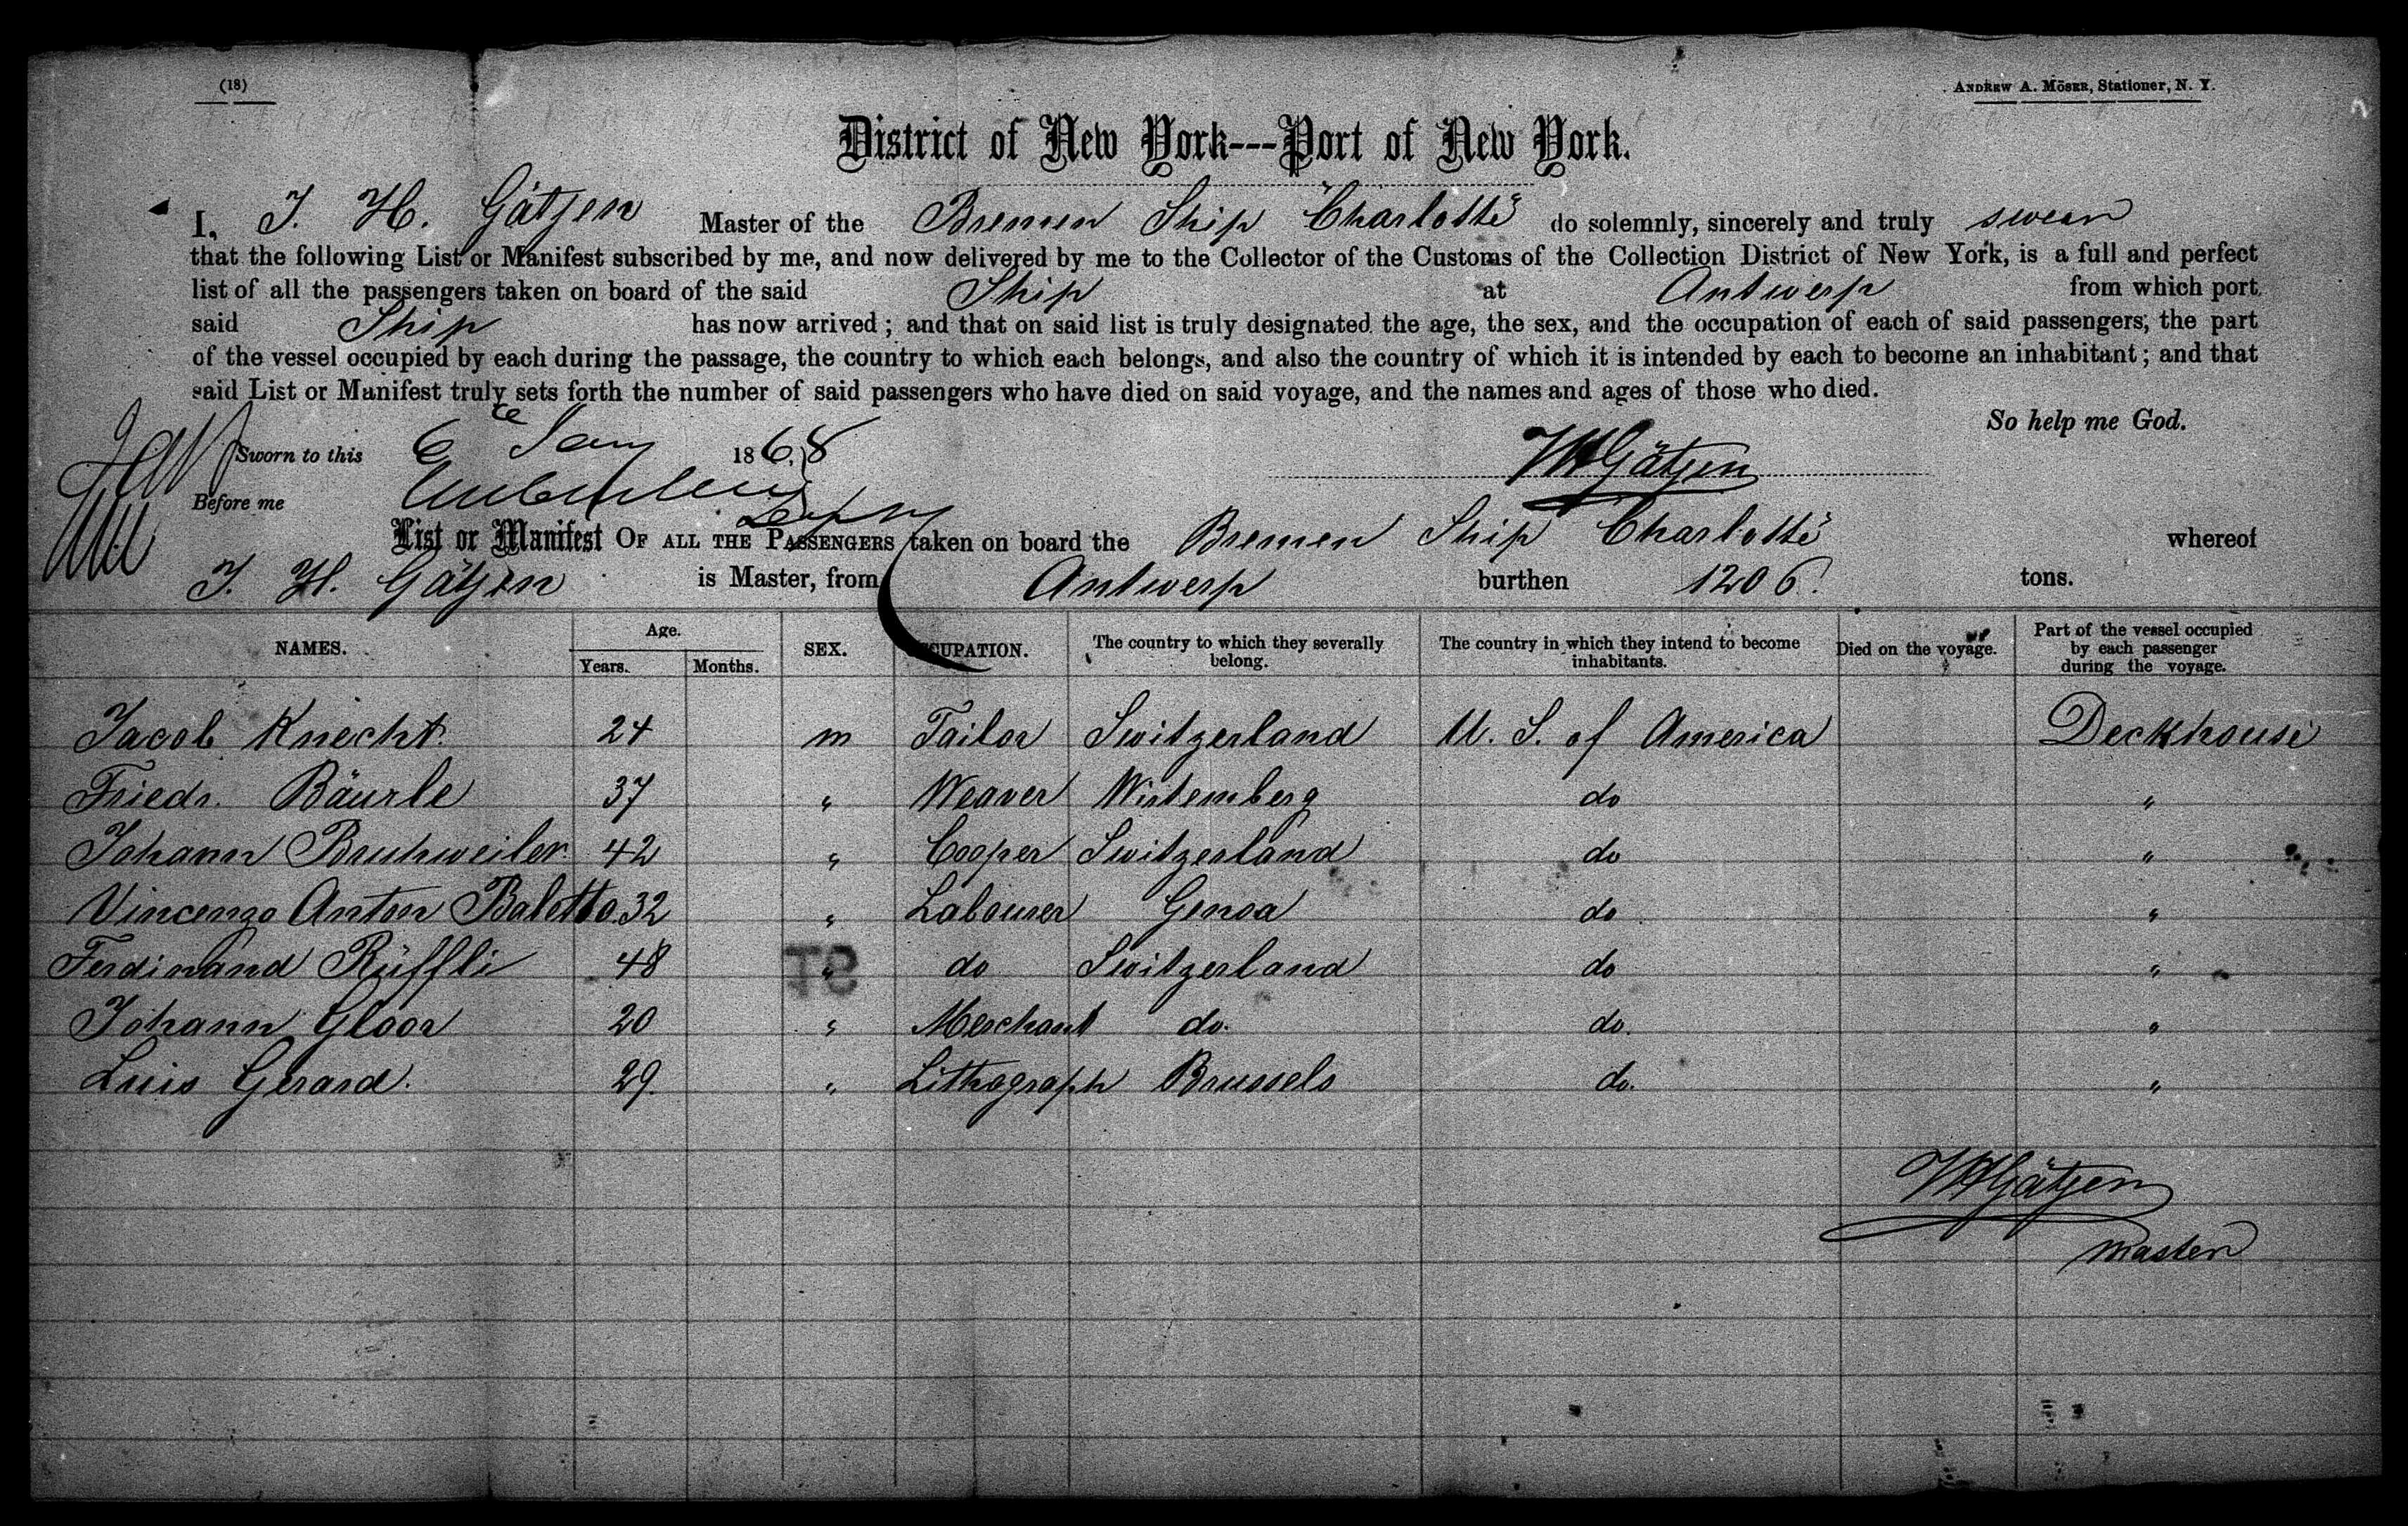 (18)
ANDREW A. MÖSER, Stationer, N. Y.
District of New York---Port of New York.
I, J. H. Gätjen Master of the Bremen Ship "Charlotte" do solemnly, sincerely and truly swear
that the following List or Manifest subscribed by me, and now delivered by me to the Collector of the Customs of the Collection District of New York, is a full and perfect
list of all the passengers taken on board of the said Ship at Antwerp from which port
said Ship has now arrived; and that on said list is truly designated the age, the sex, and the occupation of each of said passengers, the part
of the vessel occupied by each during the passage, the country to which each belongs, and also the country of which it is intended by each to become an inhabitant; and that
said List or Manifest truly sets forth the number of said passengers who have died on said voyage, and the names and ages of those who died.
So help me God.
Sworn to this 6 Jany 1868 JHGätjen
Before me
List or Manifest OF ALL THE PASSENGERS taken on board the Bremen Ship Charlotte" whereof
J. H. Gätjen is Master, from Antwerp burthen 1206. tons.
NAMES. Age. Years. Months. SEX. OCCUPATION. The country to which they severally belong. The country in which they intend to become inhabitants. Died on the voyage. Part of the vessel occupied by each passenger during the voyage.
Jacob Knecht. 24 m Tailor Switzerland U. S. of America Deckhouse
Friedr. Bäurle 37 " Weaver Wirtemberg do "
Johann Bruhweiler. 42 " Cooper Switzerland do "
Vincenzo Anton Baletto. 32 " Labourer Genoa do "
Ferdinand Rüffli 48 " do Switzerland do "
Johann Gloor 20 " Merchant do. do. "
Luis Gerard. 29. " Lithograph Brussels do. "
JHGätjen
Master